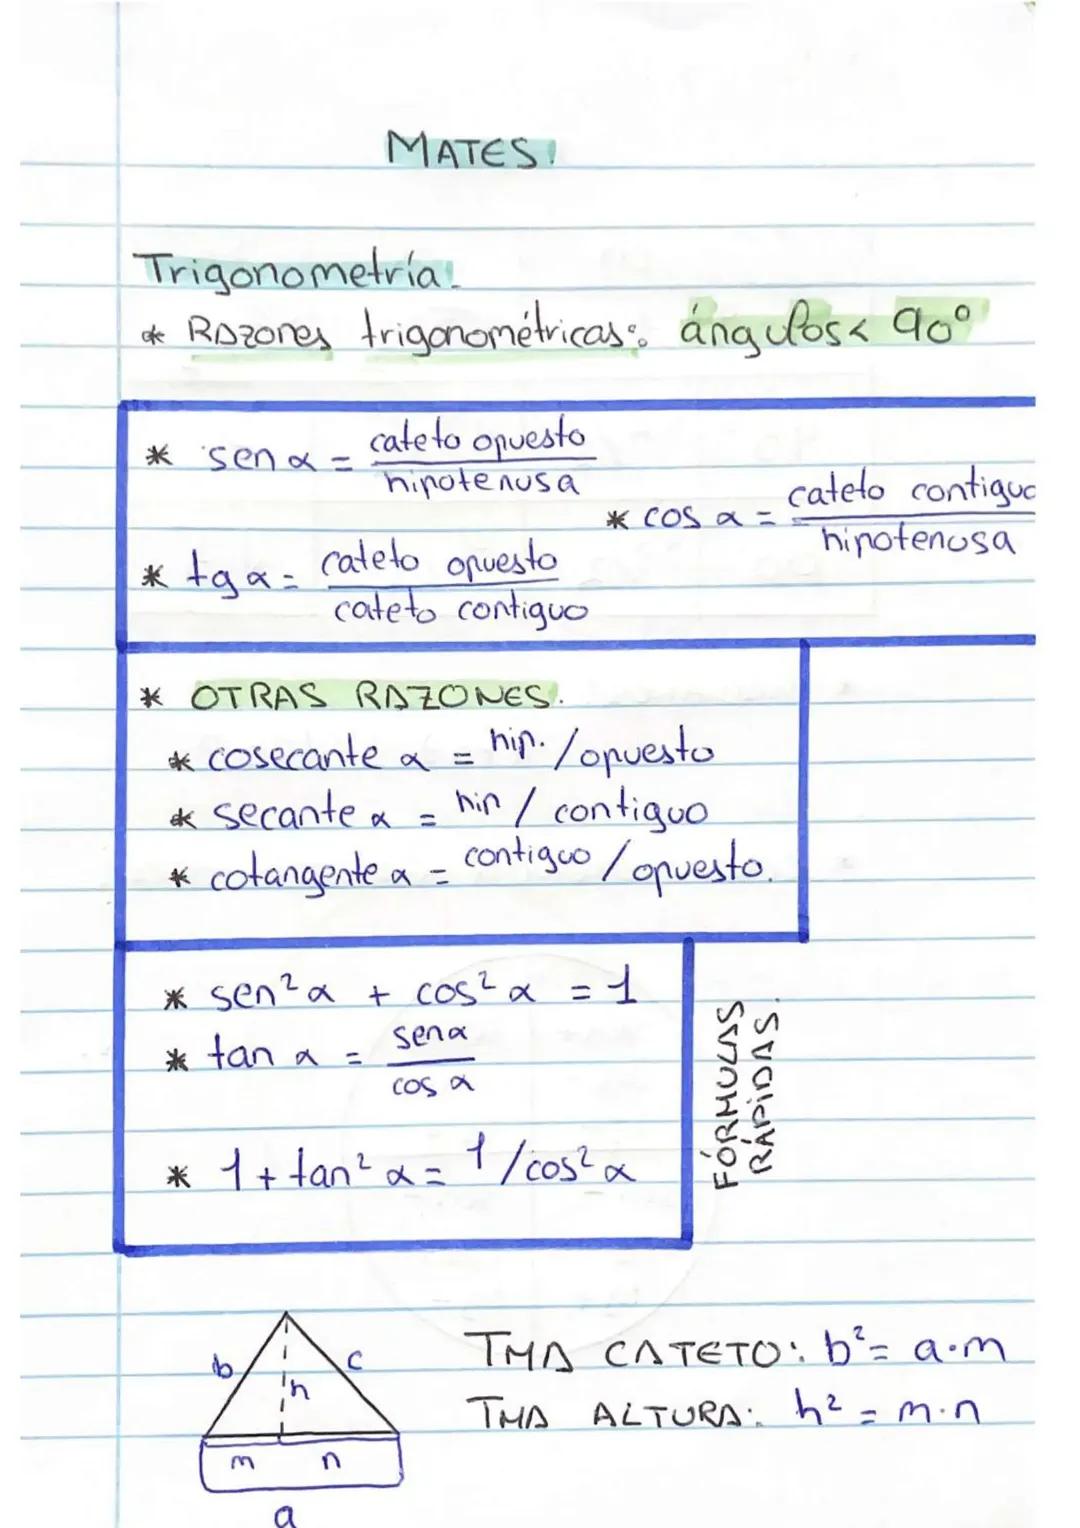 MATES!
Trigonometría!
* Razones trigonométricas: ángulos < 90º
* sen α = cateto opuesto / hipotenusa
* cos α = cateto contiguo / hipotenusa
* tg α = cateto opuesto / cateto contiguo
* OTRAS RAZONES.
* cosecante α = hip. / opuesto
* secante α = hip / contiguo
* cotangente α = contiguo / opuesto.
* sen² α + cos² α = 1
* tan α = sen α / cos α
* 1 + tan² α = 1 / cos² α
FÓRMULAS
RÁPIDAS.
b c
h
m n
a
TMA CATETO: b² = a·m
TMA ALTURA: h² = m·n